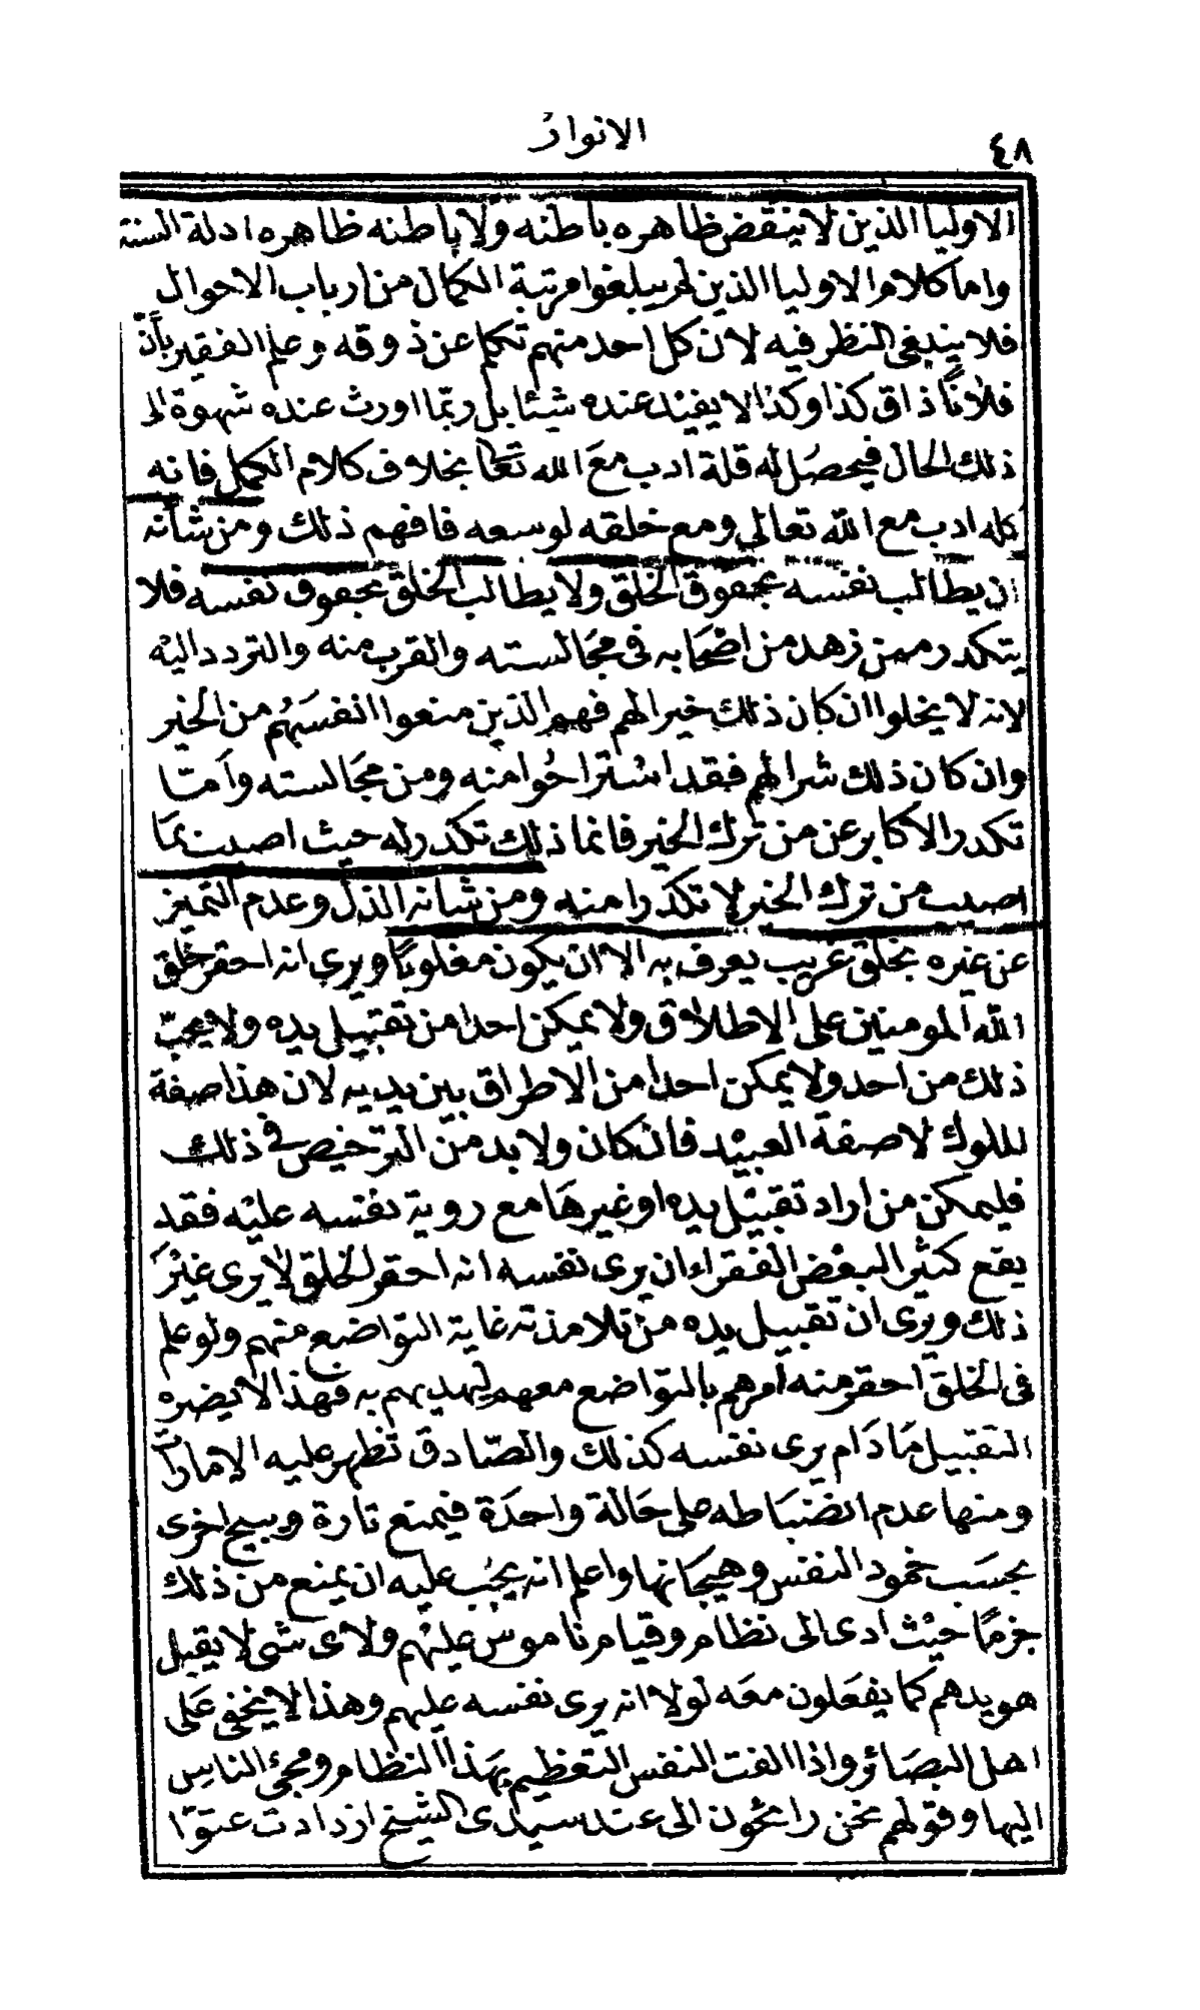 الانوار
٤٨
الاوليا الذين لا ينقض ظاهره باطنه ولا باطنه ظاهره ادلة السنة
واما كلام الاوليا الذين لم يبلغوا مرتبة الكمال من ارباب الاحوال
فلا ينبغى النظر فيه لان كل احد منهم تكلم عن ذوقه وعلم الفقير بأن
فلانًا ذاق كذا وكذا لا يفيد عنده شيئا بل ربّما اورث عنده شهوة الى
ذلك الحال فيحصل له قلة ادب مع الله تعا بخلاف كلام الكمل فانه
كله ادب مع الله تعالى ومع خلقه لوسعه فافهم ذلك ومن شأنه
ان يطالب نفسه بحقوق الخلق ولا يطالب الخلق بحقوق نفسه فلا
يتكدر ممن زهد من اصحابه فى مجالسته والقرب منه والتردد اليه
لانه لا يخلوا ان كان ذلك خيرا لهم فهم الذين منعوا انفسهم من الخير
وان كان ذلك شرا لهم فقد استراحوا منه ومن مجالسته وامّا
تكدر الاكابر عن من ترك الخير فانما ذلك تكدر له حيث اصيب بما
اصيب من ترك الخير لا تكدرا منه ومن شانه الذل وعدم التميز
عن غيره بخلق غريب يعرف به الا ان يكون مغلوبًا ويرى انه احقر خلق
الله المومنين على الاطلاق ولا يمكن احدا من تقبيل يده ولا يحبّ
ذلك من احد ولا يمكن احدا من الاطراق بين يديه لان هذا صفة
للملوك لا صفة العبيد فان كان ولا بد من الترخيص فى ذلك
فليمكن من اراد تقبيل يده او غيرها مع روية نفسه عليه فقد
يقع كثير البعض الفقراء ان يرى نفسه انه احقر الخلق لا يرى غير
ذلك ويرى ان تقبيل يده من تلامذته غاية التواضع منهم ولو علم
فى الخلق احقر منه امرهم بالتواضع معهم ليهديهم به فهذا لا يضره
التقبيل مَا دَام يرى نفسه كذلك والصّادق تظهر عليه الامارات
ومنها عدم انضباطه على حالة واحدة فيمنع تارة ويبيح اخرى
بحسب خمود النفس وهيجانها واعلم انه يجب عليه ان يمنع من ذلك
جزمًا حيث ادى الى نظام وقيام ناموس عليهم ولاى شى لا يقبل
هو يدهم كما يفعلون معه لولا انه يرى نفسه عليهم وهذا لا يخفى على
اهل البصائر واذا الفت النفس التعظيم بهذا النظام ومجئ الناس
اليها وقولهم نحن رائحون الى عند سيدى الشيخ ازدادت عتوّا